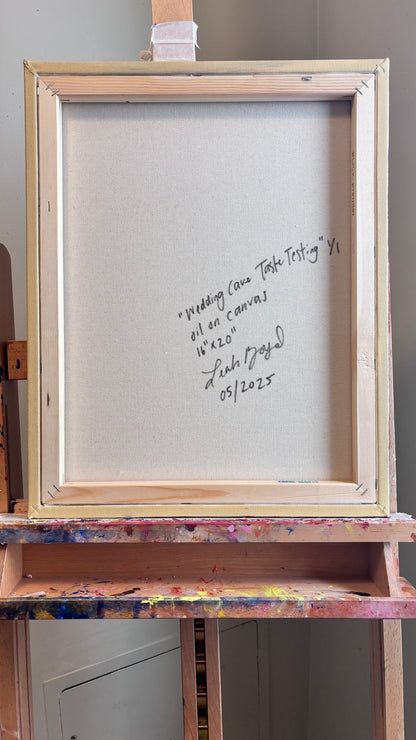 "Wedding Cake Taste Testing" 1/1
oil on canvas
16"x20"
Leah Boyd
05/2025